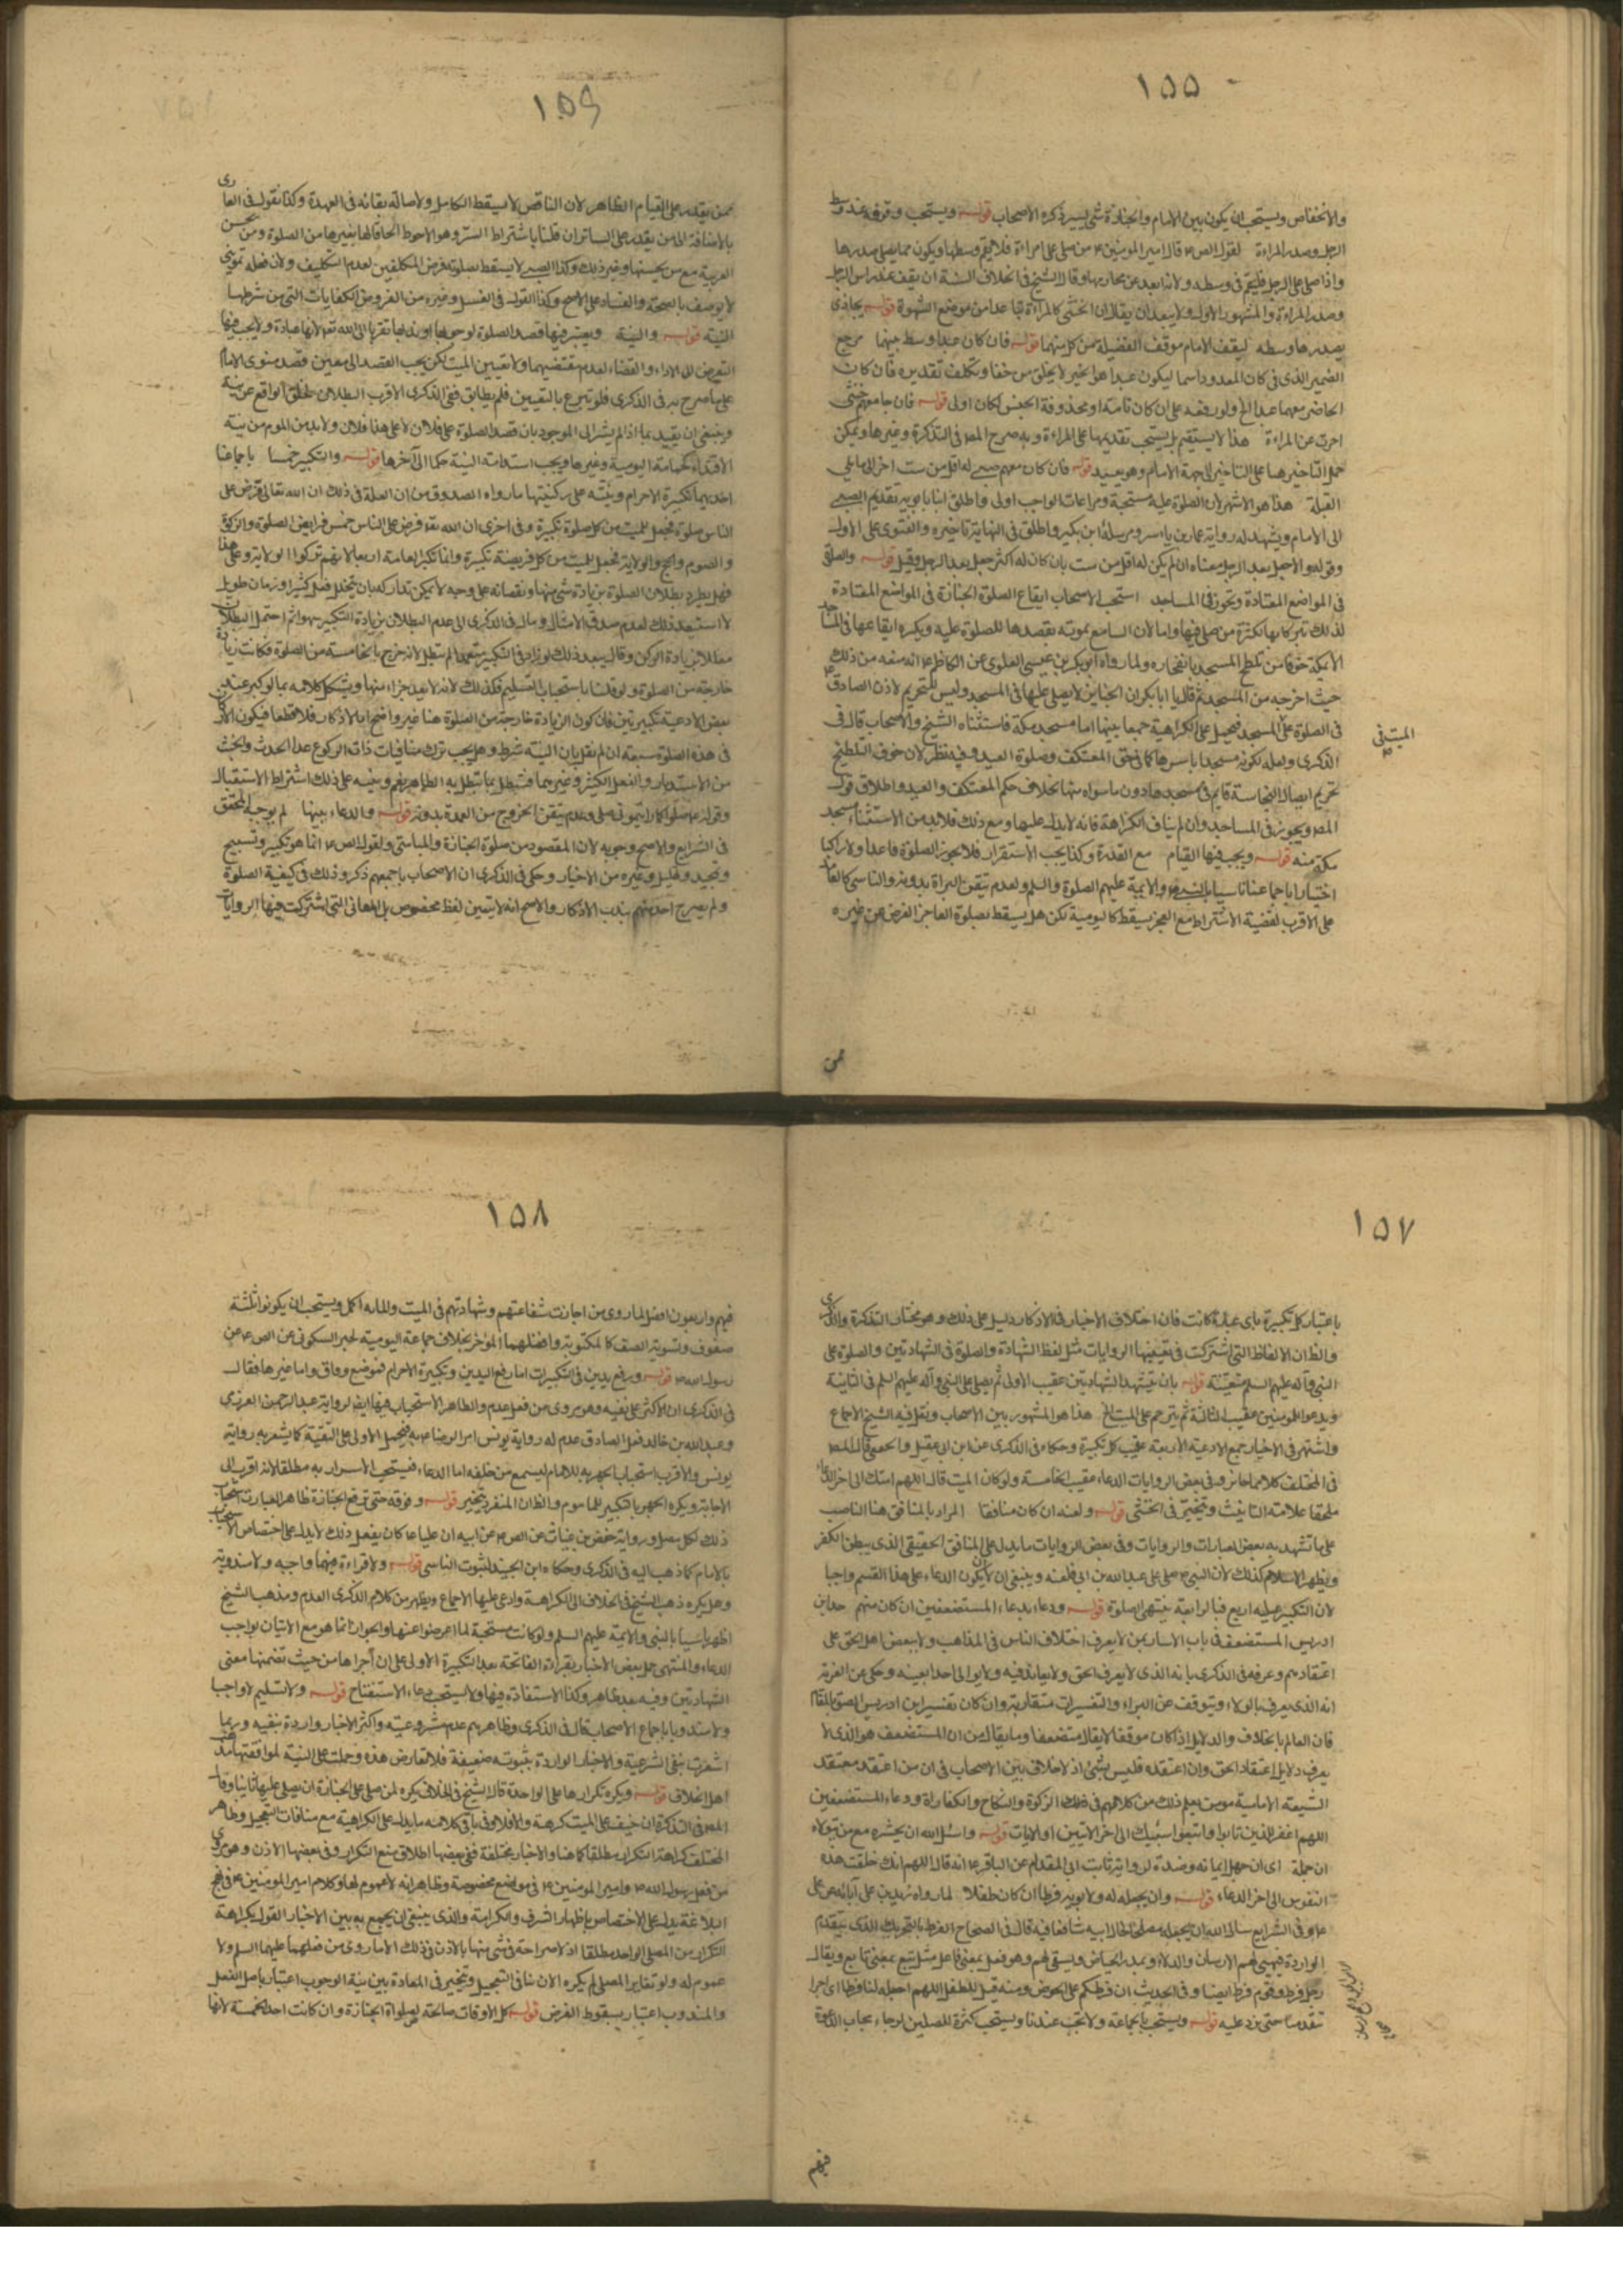 ١٥٥
والانخفاض ويستحب ان يكون بين الامام والجنازة شئ يسير ذكره الاصحاب قوله ويستحب وقوفه عند وسط
الرجل وصدر المراءة لقول الص ع قال امير المومنين ع من صلى على امراءة فلا يقم وسطها ويكون مما يلى صدرها
واذا صلى على الرجل فليقم فى وسطه ولانه ابعد عن محارمها وقال الشيخ فى الخلاف السنة ان يقف عند راس الرجل
وصدر المراءة والمشهور الاول ولا يبعد ان يقال ان الخنثى كالمراءة تباعدا من موضع الشهوة قوله يحاذى
بصدرها وسطه ليقف الامام موقف الفضيلة من كل منهما قوله فان كان عبدا وسط بينهما مرجع
الضمير الذى فى كان المعدود اسما ليكون عبدا هو الخبر لا يخلو من خفا وتكلف تقديره فان كان
الحاضر معهما عبدا الخ ولو رفعه على ان كان تامة او محذوفة الخبر لكان اولى قوله فان جامعهم خنثى
اخرت عن المراءة هذا لا يستقيم بل يستحب تقديمها على المراءة وبه صرح المصر فى التذكرة وغيرها ويمكن
حمل التاخير هنا على التاخير الى جهة الامام وهو بعيد قوله فان كان معهم صبى له اقل من ست اخر الى ما يلى
القبلة هذا هو الاشهر لان الصلوة عليه مستحبة ومراعات الواجب اولى واطلق ابنا بابويه تقديم الصبى
الى الامام ويشهد له رواية عمار بن ياسر ومرسلة ابن بكير واطلق فى النهاية تاخيره والفتوى على الاول
وقوله والاجعل بعد الرجل معناه ان لم يكن له اقل من ست بان كان له اكثر جعل بعد الرجل وقيل قوله والصلوة
فى المواضع المعتادة وتجوز فى المساجد استحب الاصحاب ايقاع الصلوة الجنازة فى المواضع المعتادة
لذلك تبركا بها لكثرة من صلى فيها واما لان السامع بموته يقصدها للصلوة عليه ويكره ايقاعها فى المساجد
الا بمكة خوفا من تلطخ المسجد بانفجاره ولما رواه ابو بكر بن عيسى العلوى عن الكاظم ع انه منعه من ذلك
حيث اخرجه من المسجد ثم قال يا ابا بكر ان الجنايز لا يصلى عليها فى المسجد وليس للتحريم لاذن الصادق ع
فى الصلوة على المسجد فيحمل على الكراهية جمعا بينها اما مسجد مكة فاستثناه الشيخ والاصحاب قال فى
الميت فى
الذكرى ولعله لكونه مسجدا باسرها كما فى حق المعتكف وصلوة العيد وفيه نظر لان خوف التلطيخ
تحريم ايصال النجاسة قايم فى مسجدها دون ما سواه منها بخلاف حكم المعتكف والعيد واطلاق قول
المصر ويجوز فى المساجد وان لم يناف الكراهة فانه لا يدل عليها ومع ذلك فلا بد من الاستثناء مسجد
مكة منه قوله ويجب فيها القيام مع القدرة وكذا يجب الاستقرار فلا يجوز الصلوة قاعدا ولا راكبا
اختيارا باجماعنا تاسيا بالنبى ص والايمة عليهم الصلوة والسلم ولعدم تيقن البراة بدونه والناسى كالعامد
على الاقرب لقضية الاشتراط مع العجز يسقط كاليومية لكن هل يسقط بصلوة العاجز الفرض عن غيره
ممن
١٥٦
ممن يقدر على القيام الظاهر لا لان الناقص لا يسقط الكامل ولاصالة بقائه فى العهدة وكذا نقول فى العارى
بالاضافة الى من يقدر على الساتر ان قلنا باشتراط الستر وهو الاحوط الحاقا لها بغيرها من الصلوة ومن يحسن
العربية مع من يحسنها وغير ذلك وكذا الصبى لا يسقط بصلوته فرض المكلفين لعدم التكليف ولان فعله تمرينى
لا يوصف بالصحة والفساد على الاصح وكذا القول فى الغسل وغيره من الفروض الكفايات التى من شرطها
النية قوله والنية ويعتبر فيها قصد الصلوة لوجوبها او ندبها تقربا الى الله تعالى لانها عبادة ولا يجب فيها
التعرض للاداء والقضاء لعدم مقتضيهما ولا تعيين الميت لكن يجب القصد الى معين قصد منوى الامام
على ما صرح به فى الذكرى فلو تبرع بالتعيين فلم يطابق ففى الذكرى الاقرب البطلان لخلو الواقع عن نية
وينبغى ان يقيد بما اذا لم يشر الى الموجود بان قصد الصلوة على فلان لا على هذا فلان ولا بد من الموم من نية
الاقتداء كجماعة اليومية وغيرها ويجب استدامة النية حكما الى آخرها قوله والتكبير خمسا باجماعنا
احديها تكبيرة الاحرام ونبه على ركنيتها ما رواه الصدوق من ان العلة فى ذلك ان الله تعالى فرض على
الناس صلوة فجعل للميت من كل صلوة تكبيرة وفى اخرى ان الله تعالى فرض على الناس خمس فرايض الصلوة والزكوة
والصوم والحج والولاية فجعل للميت من كل فريضة تكبيرة وانما تكبر العامة اربعا لانهم تركوا الولاية وعلى هذا
فهل يطرد بطلان الصلوة بزيادة شئ منها ونقصانه على وجه لا يمكن تداركه بان يتخلل فعل كثير او زمان طويل
لا استبعد ذلك لعدم صدق الامتثال ومال فى الذكرى الى عدم البطلان بزيادة التكبير سهوا ثم احتمل البطلان
معللا بزيادة الركن وقال بعد ذلك لو زاد فى التكبير متعمدا لم تبطل لانه خرج بالخامسة من الصلوة فكانت زيادة
خارجة من الصلوة ولو قلنا باستحباب التسليم فكذلك لانه لا يعد جزاء منها ويشكل كلامه بما لو كبر عند
بعض الادعية تكبيرتين فان كون الزيادة خارجة من الصلوة هنا غير واضح اما بالاذكار فلا قطعا فيكون الاركان
فى هذه الصلوة سبعة ان لم نقل بان النية شرط وهل يجب ترك منافيات ذات الركوع عدا الحدث والخبث
من الاستدبار والفعل الكثير وغيرهما فتبطل بما تبطل به الظاهر نعم وينبه على ذلك اشتراط الاستقبال
وقوله ع صلوا كما رايتمونى صلى وعدم تيقن الخروج من العهدة بدونه قوله والدعاء بينها لم يوجبه المحقق
فى الشرايع والاصح وجوبه لان المقصود من صلوة الجنازة والتاسى ولقول الص ع انما هو تكبير وتسبيح
وتحميد وتهليل وغيره من الاخبار وحكى فى الذكرى ان الاصحاب باجمعهم ذكروا ذلك فى كيفية الصلوة
ولم يصرح احد منهم بندب الاذكار والاصح انه لا يتعين لفظ مخصوص بل المعانى التى اشتركت فيها الروايات
١٥٧
باعتبار كل تكبيرة باى عبارة كانت فان اختلاف الاخبار فى الاذكار دليل على ذلك وهو مختار التذكرة والذكرى
والظ ان الالفاظ التى اشتركت فى تعيينها الروايات مثل لفظ الشهادة والصلوة فى الشهادتين والصلوة على
النبى وآله عليهم السلم متعينة قوله بان يتشهد الشهادتين عقيب الاولى ثم يصلى على النبى وآله عليهم السلم فى الثانية
ويدعوا للمومنين عقيب الثالثة ثم يترحم على الميت الخ هذا هو المشهور بين الاصحاب ونقل فيه الشيخ الاجماع
واشتهر فى الاخبار جمع الادعية الاربعة عقيب كل تكبيرة وحكاه فى الذكرى عن ابن ابى عقيل والجعفى قال المصر
فى المختلف كلاهما جائز وفى بعض الروايات الدعاء عقيب الخامسة ولو كان الميت قال اللهم امتك الى اخر الدعاء
ملحقا علامة التانيث ويتخير فى الخنثى قوله ولعنه ان كان منافقا المراد بالمنافق هنا الناصب
على ما تشهد به بعض العبارات والروايات وفى بعض الروايات ما يدل على المنافق الحقيقى الذى يبطن الكفر
ويظهر الاسلام كذلك لان النبى ص صلى على عبدالله بن ابى فلعنه وينبغى ان لا يكون الدعاء على هذا القسم واجبا
لان التكبير عليه اربع فبالرابعة ينتهى الصلوة قوله ودعاء بدعاء المستضعفين ان كان منهم حد ابن
ادريس المستضعف فى باب الاسار بمن لا يعرف اختلاف الناس فى المذاهب ولا يبغض اهل الحق على
اعتقادهم وعرفه فى الذكرى بانه الذى لا يعرف الحق ولا يعاند فيه ولا يوالى احدا بعينه وحكى عن الغرية
انه الذى يعرف بالولاء ويتوقف عن البراء والتفسيرات متقاربة وان كان تفسير ابن ادريس الصق بالمقام
فان العالم بالخلاف والدلايل اذا كان موقفا لا يقال مستضعفا وما يقال من ان المستضعف هو الذى لا
يعرف دلايل اعتقاد الحق وان اعتقده فليس بشئ اذ لا خلاف بين الاصحاب فى ان من اعتقد معتقد
الشيعة الامامية مومن يعلم ذلك من كلامهم فى فطك الزكوة والنكاح والكفارات ودعاء المستضعفين
اللهم اغفر للذين تابوا واتبعوا سبيلك الى اخر الآيتين او الايات قوله واسئل الله ان يحشره مع من يتولاه
ان جهله اى ان جهل ايمانه وضده لرواية ثابت ابى المقدام عن الباقر ع انه قال اللهم انك خلقت هذه
النفوس الى اخر الدعاء قوله وان يجعله له ولابويه فرطا ان كان طفلا لما رواه زيد بن على آبائه عن على
ع وفى الشرايع سال الله ان يجعله مصلحا لحال ابيه شافعا فيه قال فى الصحاح الفرط بالتحريك الذى يتقدم
الواردة فيهيئ لهم الارسان والدلاء ويمدر الحياض ويسقى لهم وهو فعل بمعنى فاعل مثل تبع بمعنى تابع ويقال
رجل فرط وقوم فرط ايضا وفى الحديث ان فرطكم على الحوض ومنه قيل للطفل اللهم اجعله لنا فرطا اى اجرا
تتقدمنا حتى نرد عليه قوله ويستحب بالجماعة ولا تجب عندنا ويستحب كثرة المصلين لرجاء مجاب الدعوة
فيهم
١٥٨
فيهم واربعون افضل لما روى من اجازت شفاعتهم وشهادتهم فى الميت والمائه اكمل ويستحب ان يكونوا ثلثة
صفوف وتسوية الصف كالمكتوبة وافضلهما المؤخر بخلاف جماعة اليومية لخبر السكونى عن الص ع عن
رسول الله ص قوله ورفع يدين فى التكبيرات اما رفع اليدين وتكبيرة الاحرام فموضع وفاق واما غيرها فقال
فى الذكرى ان الاكثر على نفيه وهو مروى من فعل على ع والظاهر الاستحباب فيها ايضا لرواية عبد الرحمن العرزمى
وعبدالله بن خالد فعل الصادق ع له رواية يونس امر الرضا ع به فيحمل الاولى على التقية كما يشعر به رواية
يونس والاقرب استحباب الجهر به للامام ليسمع من خلفه اما الدعاء فيستحب الاسرار به مطلقا لانه اقرب الى
الاجابة ويكره الجهر بالتكبير للماموم والظ ان المنفرد يتخير قوله وقوفه حتى ترفع الجنازة ظاهر العبارت استحباب
ذلك لكل مصل ورواية حفص بن غياث عن الص ع عن ابيه ان عليا ع كان يفعل ذلك لا يدل على اختصاص الاستحباب
بالامام كما ذهب اليه فى الذكرى وحكاه ابن الجنيد لثبوت التاسى قوله ولا قراءة فيهما واجبه ولا مندوبة
وهل يكره ذهب الشيخ فى الخلاف الى الكراهة وادعى عليها الاجماع ويظهر من كلام الذكرى العدم ومذهب الشيخ
اظهر تاسيا بالنبى والايمة عليهم السلم ولو كانت مستحبة لما اعرضوا عنها والجواز انما هو مع الاتيان بواجب
الدعاء والمنتهى حمل بعض الاخبار بقراءة الفاتحة بعد التكبيرة الاولى على ان أجزاها من حيث تضمنها معنى
الشهادتين وفيه بعد ظاهر وكذا الاستفاذة فيها ولا يستحب دعاء الاستفتاح قوله ولا تسليم لا واجبا
ولا مندوبا باجماع الاصحاب قال فى الذكرى وظاهرهم عدم مشروعيته واكثر الاخبار واردة بنفيه وربما
اشعرت بنفى الشرعية والاخبار الواردة بثبوته ضعيفة فلا تعارض هذه وحملت على التقية لموافقتها مذهب
اهل الخلاف قوله ويكره تكرارها على الواحدة قال الشيخ فى الخلاف يكره لمن صلى على الجنازة ان يصلى عليها ثانيا وقال
المصر فى التذكرة ان خيف على الميت كرهت والا فلا وفى باقى كلامه ما يدل على الكراهية مع منافات التعجيل وظاهر
المختلف كراهة التكرار مطلقا كما هنا والاخبار مختلفة ففى بعضها اطلاق منع التكرار وفى بعضها الاذن وهو مروى
من فعل رسول الله ص وامير المومنين ع فى مواضع مخصوصة وظاهر انه لا عموم لها وكلام امير المومنين ع فى نهج
البلاغة يدل على الاختصاص باظهار الشرف والكرامة والذى ينبغى ان يجمع به بين الاخبار القول بكراهة
التكرار من المصلى الواحد مطلقا اذ لا صراحة فى شئ منها بالاذن فى ذلك الا ما روى من فعلهما عليهما السلم ولا
عموم له ولو تغاير المصلى لم يكره الا ان ينافى التعجيل ويتخير فى المعادة بين نية الوجوب اعتبارا باصل الفعل
والمندوب اعتبار بسقوط الفرض قوله كل الاوقات صالحة لصلواة الجنازة وان كانت احد الخمسة لانها